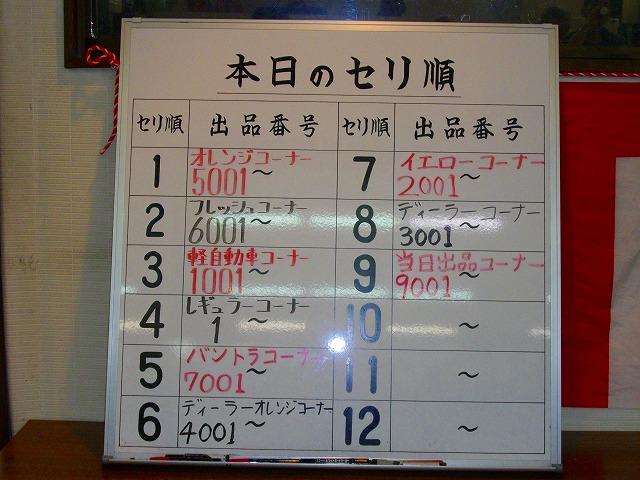 本日のセリ順
セリ順 出品番号 セリ順 出品番号
1 オレンジコーナー 5001〜
2 フレッシュコーナー 6001〜
3 軽自動車コーナー 1001〜
4 レギュラーコーナー 1〜
5 バントラコーナー 7001〜
6 ディーラーオレンジコーナー 4001〜
7 イエローコーナー 2001〜
8 ディーラーコーナー 3001〜
9 当日出品コーナー 9001〜
10 〜
11 〜
12 〜